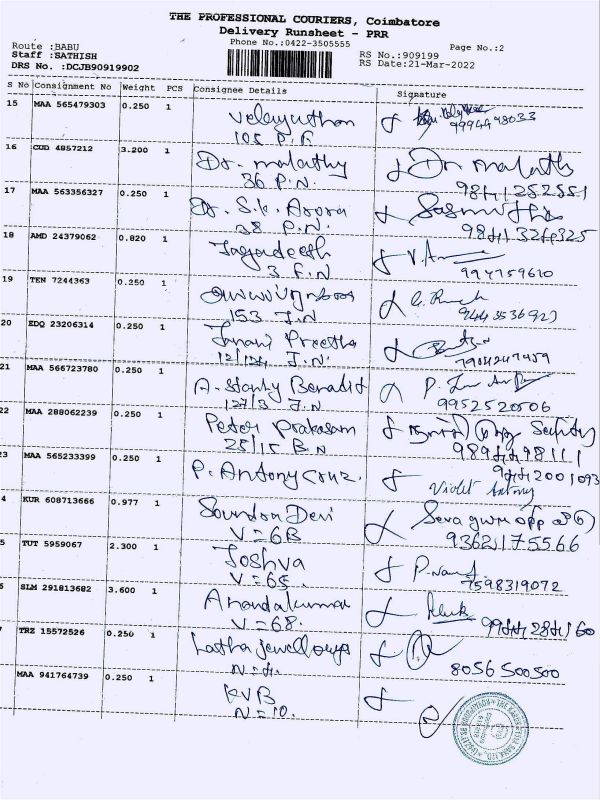 THE PROFESSIONAL COURIERS, Coimbatore
Delivery Runsheet - PRR
Phone No.:0422-3505555
Page No.:2
Route :BABU
Staff :SATHISH
DRS No. :DCJB90919902
RS No.:909199
RS Date:21-Mar-2022
S No Consignment No Weight PCS Consignee Details Signature
15 MAA 565479303 0.250 1 Velayuthan
105 P.F. 9994448033
16 CUD 4857212 3.200 1 Dr. Malathy Dr. Malath
36 P.N. 9841252551
17 MAA 563356327 0.250 1 Dr. S.K. Arora
38 P.N. 9841324325
18 AMD 24379062 0.820 1 Jagadeesh
3 F.N 994759610
19 TEN 7244363 0.250 1
153 J.N 9443536927
20 EDQ 23206314 0.250 1 Janani Preetha
12/124 J.N. 7904247459
21 MAA 566723780 0.250 1 A. Stanly Benadit
127/3 J.N 9952520506
22 MAA 288062239 0.250 1 Peter Prakasam Security
25/15 B.N 9894498111
3 MAA 565233399 0.250 1 P. Antony Cruz. 9442001093
Violet Antony
4 KUR 608713666 0.977 1 Soundra Devi
V=6B 9362175566
5 TUT 5959067 2.300 1 Joshva
V=65. 7598319072
SLM 291813682 3.600 1 Anandakumar
V=68. 9944284160
TRZ 15572526 0.250 1 Latha Jewellerys
N=4. 8056500500
MAA 941764739 0.250 1 KVB
N=10.